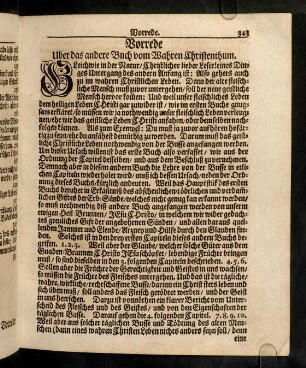 Vorrede. 343
Vorrede
Uber das andere Buch vom Wahren Christenthum.
GLeichwie in der Natur/ Christlicher lieber Leser/eines Din-
ges Untergang des andern Anfang ist: Also gehets auch
zu im wahren Christlichen Leben. Denn der alte fleisch-
liche Mensch muß zuvor untergehen/ soll der neue geistliche
Mensch hervor kommen: Und weil unser fleischliches Leben
den heiligen Leben Christi gar zuwider ist/ wie im ersten Buche gnug-
sam erkläret/ so müssen wir ja nothwendig unser fleischliches Leben
verleugnen/ ehe wir das geistliche Leben Christi anfahen/ oder demselben nach-
folgen können. Als zum Exempel: Du must ja zuvor aufhören hoffär-
tig zu seyn/ ehe du anfähest demütig zu werden. Darum muß das geist-
liche Christliche Leben nothwendig von der Busse angefangen werden.
Um dieser Ursach willen ist das erste Buch also verfasset/ wie du aus der
Ordnung der Capitel desselben/ und aus dem Beschluß zu vernehmen.
Demnach aber in diesem andern Buch die Lehre von der Busse in etli-
chen Capiteln wiederholet/ müssen/ muß ich dessen Ursach neben der Ord-
nung dieses Buchs kürtzlich andeuten. Weil das Hauptstück des ersten
Buchs beruhet in Erkäntniß des abscheulichen/ tödtlichen und verdam-
lichen Giftes der Erb-Sünde/ welches nicht genug kan erkannt werden/
so muß nothwendig diß andere Buch angefangen werden von unserm
ewigen Heil-Brunnen/ JEsu Christo/ in welchem wir wider
das greuliche Gift der angebohrnen Sünden/ und allen daraus quel-
lenden Jammer und Elende/ Artzney und Hülfe durch den Glauben fin-
den. Solches ist in den dreyen ersten Capiteln dieses andern Buchs be-
griffen. 1. 2. 3. Weil aber der Glaube/ welcher solche Güter aus dem
Gnaden-Brunnen Christo JEsu schöpfet/ lebendige Früchte bringen
muß/ so sind dieselben in den 3. folgenden Capiteln beschrieben. 4. 5. 6.
Sollen aber die Früchte der Gerechtigkeit und Geistes in uns wachsen/
so müssen die Früchte des Fleisches untergehen. Und das ist die tägliche/
wahre, thätliche/ rechtschaffene Busse/ darinn ein Christ stets leben und
sich üben muß/ soll anders das Fleisch getödtet werden/ und der Geist
in uns herrschen. Darzu ist vonnöthen ein klarer Bericht vom Unter-
scheid des Fleisches und des Geistes/ und von den Eigenschaften der
täglichen Busse. Darauf gehen die 4. folgenden Capitel. 7. 8. 9. 10.
Weil aber aus solcher täglichen Busse und Tödtung des alten Men-
schen (dann eines wahren Christen Leben nichts anders seyn soll/ denn
eine